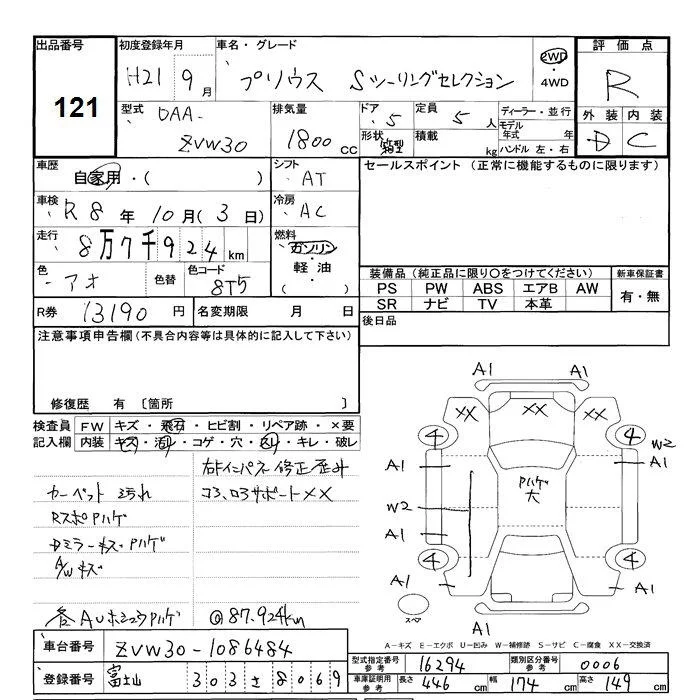 出品番号
121
初度登録年月
H21 9月
車名・グレード
プリウス Sツーリングセレクション
2WD
・
4WD
評価点
R
外装 内装
D C
型式
DAA-
ZVW30
排気量
1800 CC
ドア 5
形状
定員 5 人
積載 kg
ディーラー・並行
モデル年式 年
ハンドル 左・右
車歴
自家用・( )
シフト
AT
車検
R8年10月(3日)
冷房
AC
走行
8万7千924km
燃料
ガソリン
・
軽油
・
( )
色
アオ
色替
色コード
8T5
R券 13190 円
名変期限 月 日
セールスポイント (正常に機能するものに限ります)
装備品(純正品に限り○をつけてください)
PS PW ABS エアB AW
SR ナビ TV 本革
新車保証書
有・無
後日品
注意事項申告欄(不具合内容等は具体的に記入して下さい)
修復歴 有 〔箇所 〕
検査員
記入欄
FW キズ・飛石・ヒビ割・リペア跡・×要
内装 キズ・汚レ・コゲ・穴・スレ・キレ・破レ
カーペット汚れ
RスポPハゲ
DミラーキズPハゲ
A/Wキズ
各AUホシュウPハゲ
右ドインパネ修正歪み
コア、ロアサポートXX
@87.924km
A1 A1
XX XX XX
4 4
W2
A1 A1
Pハゲ
大
W2
A1 A1
4 4
A1 A1
スペア
A1
A−キズ E−エクボ U−凹み W−補修跡 S−サビ C−腐食 XX−交換済
車台番号 ZVW30-1086484
登録番号 富士山 303 さ 8069
型式指定番号
参考
16294
類別区分番号
参考
0006
車庫証明用
参考
長さ 446 cm
幅 174 cm
高さ 149 cm